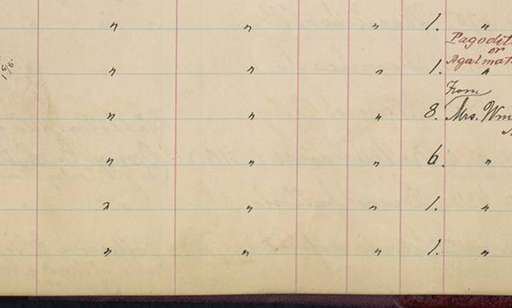 " " " 1. "
Pagodit
or
Agalmat
" " " 1. "
From
" " " 8. Mrs. Wm
" " " 6. "
" " " 1. "
" " " 1. "